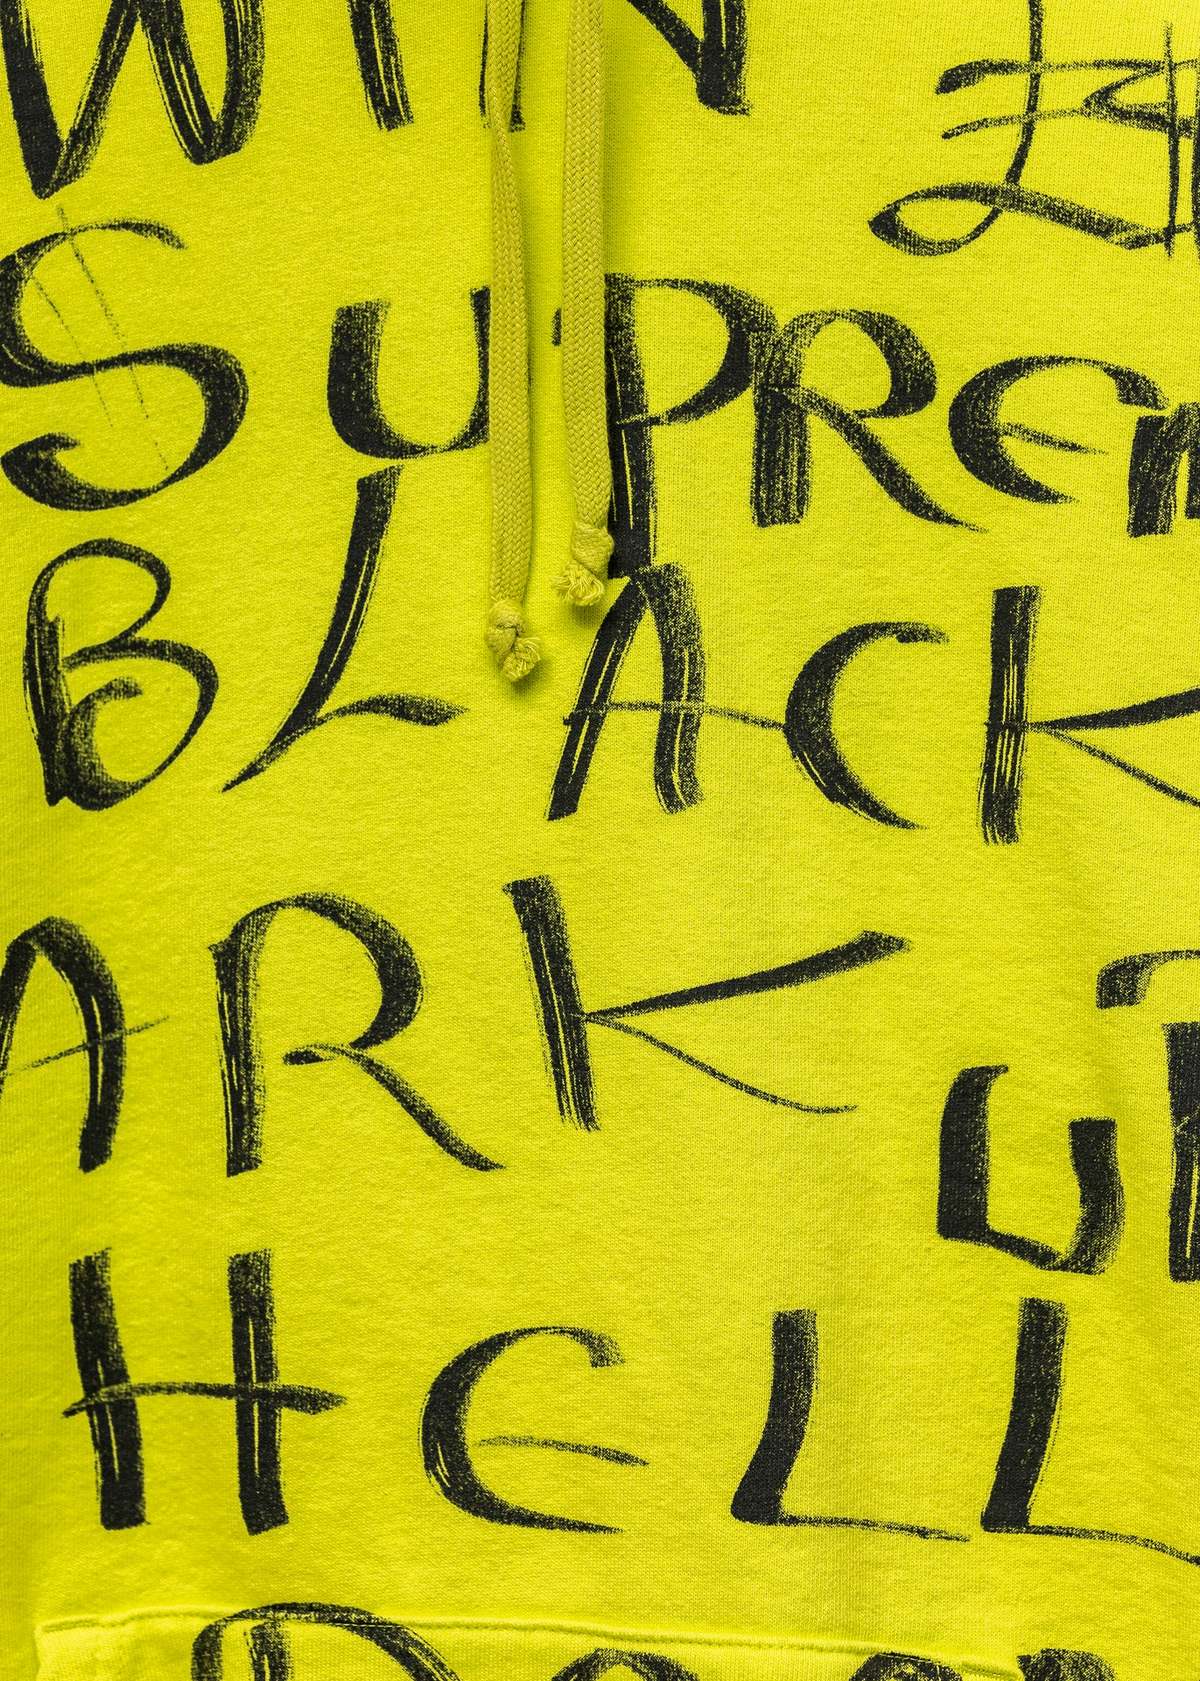 WIN £
SUPREM
BLACK
ARK
U
HELL